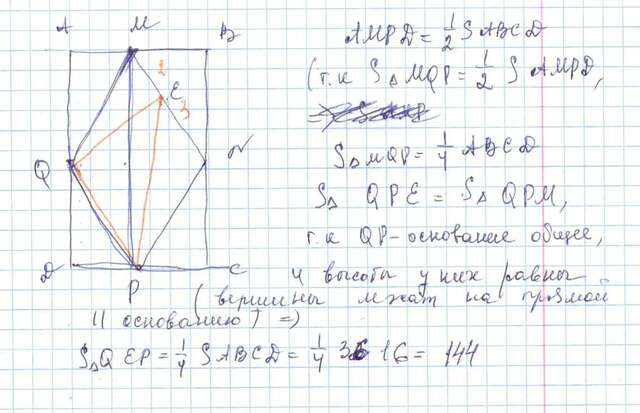 A M B
AMPD = 1/2 S ABCD
2
(т.к S△ MQP = 1/2 S AMPD,
E
3
Q N
S△ MQP = 1/4 ABCD
S△ QPE = S△ QPM,
т.к QP-основание общее,
D P C
и высоты у них равны
(вершины лежат на прямой
|| основанию) =>
S△ QEP = 1/4 S ABCD = 1/4 36 16 = 144